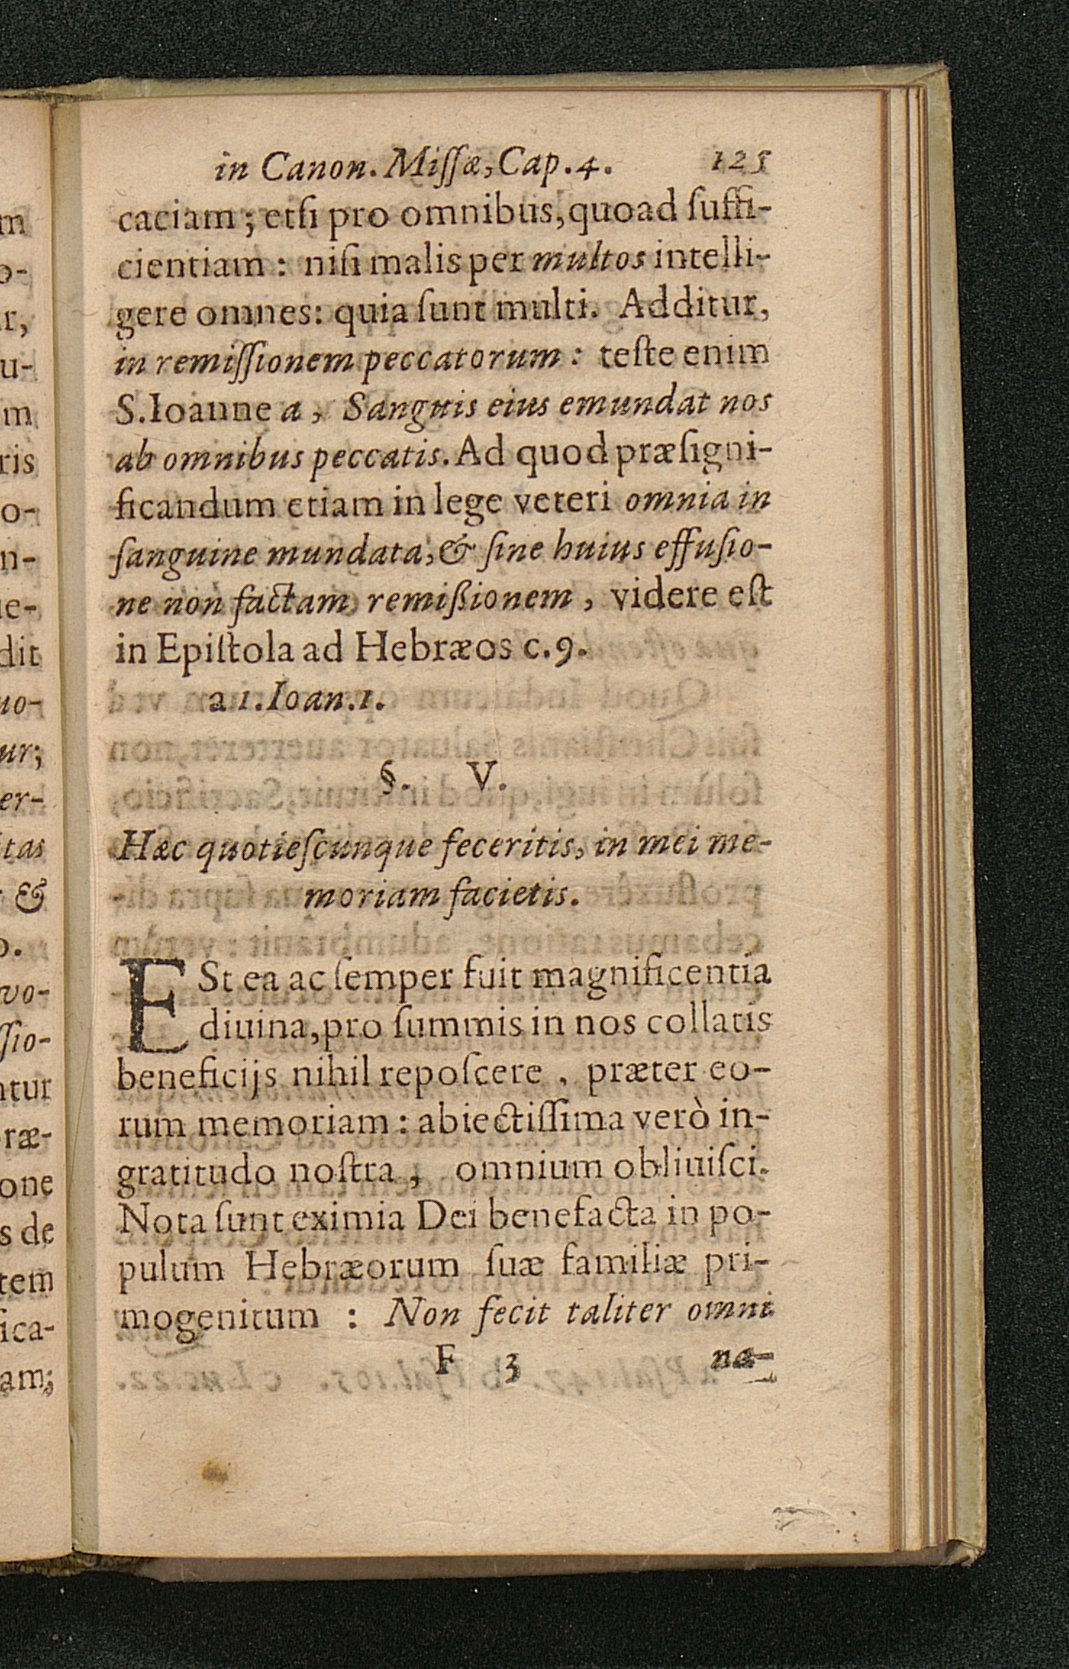 in Canon. Miſſæ, Cap. 4. 125
caciam; etſi pro omnibus, quoad ſuffi-
cientiam: niſi malis per multos intelli-
gere omnes: quia ſunt multi. Additur,
in remiſſionem peccatorum: teſte enim
S. Ioanne a, Sanguis eius emundat nos
ab omnibus peccatis. Ad quod præſigni-
ficandum etiam in lege veteri omnia in
ſanguine mundata, & ſine huius effuſio-
ne non factam remißionem, videre eſt
in Epiſtola ad Hebræos c. 9.
a 1. Ioan. 1.
§. V.
Hæc quotieſcunque feceritis, in mei me-
moriam facietis.
ESt ea ac ſemper fuit magnificentia
diuina, pro ſummis in nos collatis
beneficijs nihil repoſcere, præter eo-
rum memoriam: abiectiſſima verò in-
gratitudo noſtra, omnium obliuiſci.
Nota ſunt eximia Dei benefacta in po-
pulum Hebræorum ſuæ familiæ pri-
mogenitum: Non fecit taliter omni
F 3 na-
m
o-
r,
u-
m
ris
o-
n-
ue-
dit
uo-
ur;
er-
itas
&
o.
vo-
ſſio-
ntur
ræ-
one
s de
tem
ica-
am;